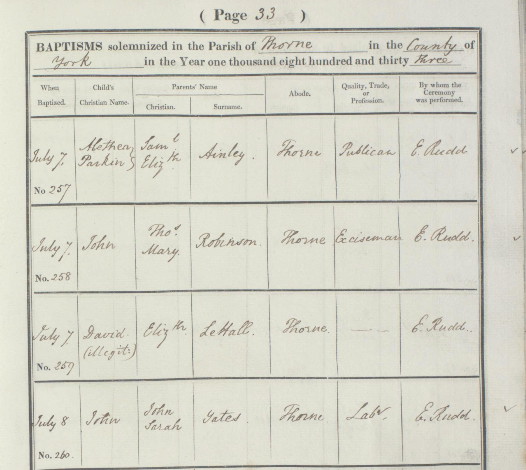 ( Page 33 )
BAPTISMS solemnized in the Parish of Thorne in the County of
York in the Year one thousand eight hundred and thirty three
When Baptized. Child's Christian Name. Parents' Name Christian. Surname. Abode. Quality, Trade, or Profession. By whom the Ceremony was performed.
July 7. Alethea Parkin Saml Elizth Ainley. Thorne Publican E. Rudd
No 257
July 7. John Thos. Mary. Robinson. Thorne Exciseman E. Rudd.
No. 258
July 7 David (illegit:) Elizth. LeHall. Thorne. E. Rudd.
No. 259
July 8 John John Sarah Yates. Thorne Labr. E. Rudd.
No. 260.